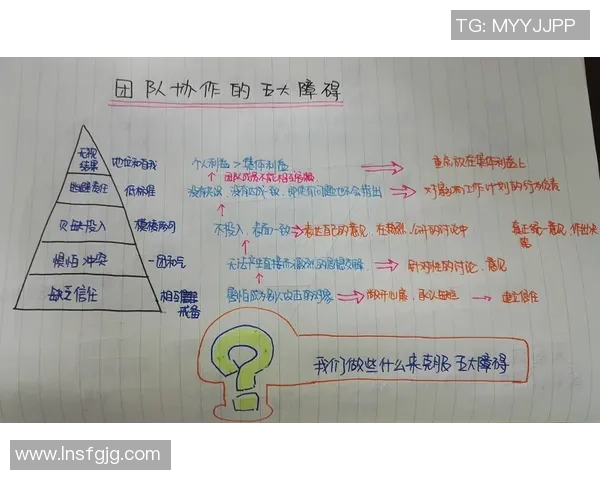 TG: MYYJJPP
团队协作的五大障碍
无视结果 地位和自我 个人利益 > 集体利益 重点放在集体利益上
团队成员不能相互
逃避责任 低标准 没有失误、没有达成一致，即使有问题也不会指出 对影响工作计划的行为负责
欠缺投入 模棱两可 不投入、表面一致 表达自己的意见，在激烈、公开的讨论中 真正统一意见，作出决策
惧怕冲突 一团和气 无法产生直接而激烈的思想交锋 针对性的讨论、意见
缺乏信任 相互戒备 害怕成为别人攻击的对象 敞开心扉，承认 建立信任
我们做些什么来克服五大障碍
www.lnsfgjg.com